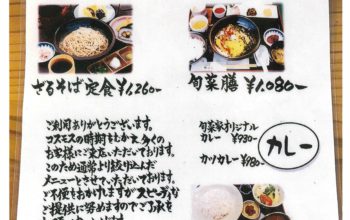 ざるそば定食 ¥1,260-
旬菜膳 ¥1,080-
ご利用ありがとうございます。
コスモスの時期をむかえ多くの
お客様にご来店いただいております。
このため通常より絞り込んだ
メニューとさせていただいております。
ご不便をおかけしますがスピーディな
ご提供に努めますのでご了承を
旬菜家オリジナル
カレー ¥730-
カツカレー ¥980-
カレー